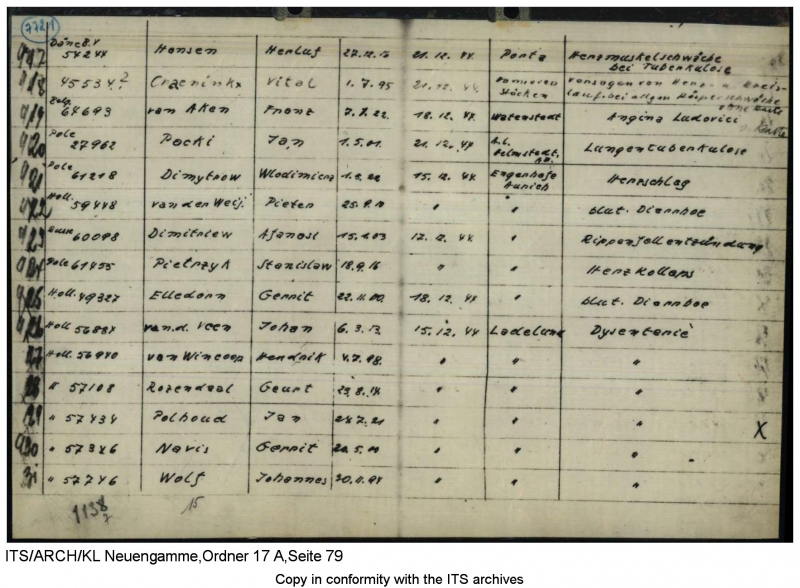 772/1
917 Däne B.4 54244 Hansen Herluf 27.12.13 21.12.44 Porta Herzmuskelschwäche bei Tuberkulose
918 45534 Craeninkx Vital 1.7.95 21.12.44 Hannover Stöcken Versagen von Herz- u. Kreis-
lauf bei allgem. Körperschwäche
919 64693 van Aken Franz 7.7.22 18.12.44 Watenstedt Angina Ludovici
920 Pole 27962 Packi Jan 1.5.01 21.12.44 A.L. Helmstedt Lungentuberkulose
921 Pole 61218 Dimytrow 15.12.44 Engerhafe Aurich Herzschlag
922 Holl. 59448 van der Weij. Pieter 25.9.10 " " blut. Diarrhoe
923 Russe 60098 Dimitriew Afanasi 15.1.03 12.12.44 " Rippenfellentzündung
924 Pole 61455 Pietrzyk Stanislaw 18.9.16 " " Herzkollaps
925 Holl. 49327 Elledorn Gerrit 22.11.00. 18.12.44 " blut. Diarrhoe
926 Holl 56884 van.d. Veen Johan 6.3.13 15.12.44 Ladelund Dysenterie
27 Holl. 56940 van Wincoop Hendrik 4.7.98. " " "
28 " 57108 Rozendaal Geurt 23.8.14 " " "
29 " 57434 Polhoud Jan 28.7.21 " " " X
930 " 57346 Navis Gerrit " " "
31 " 57746 Wolf Johannes 30.11.94 " " "
1138
7
15
ITS/ARCH/KL Neuengamme,Ordner 17 A,Seite 79
Copy in conformity with the ITS archives